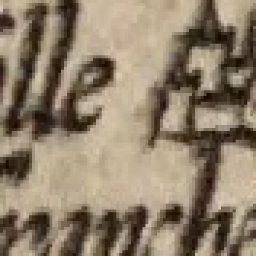 ille
ranche